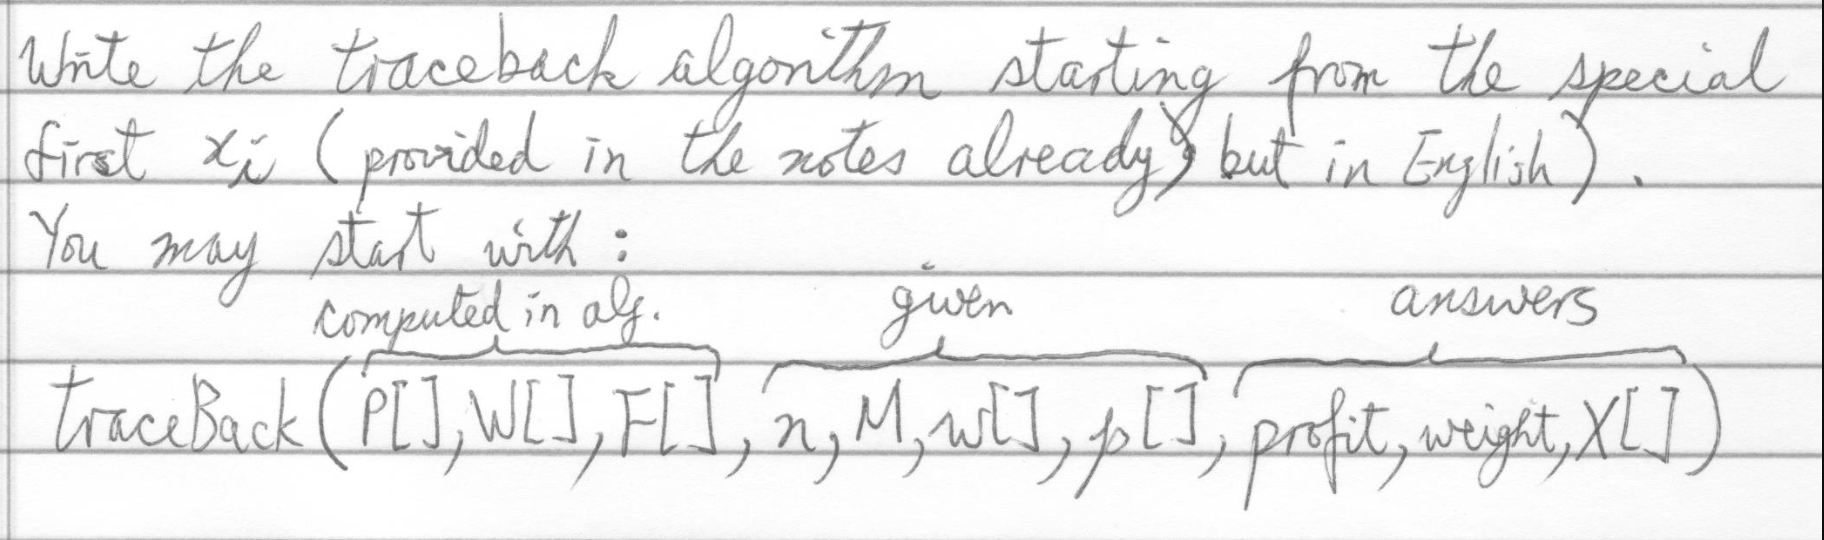 Write the traceback algorithm starting from the special
first xi (provided in the notes already, but in English).
You may start with:
computed in alg. given answers
traceBack(P[], W[], F[], n, M, w[], p[], profit, weight, X[])